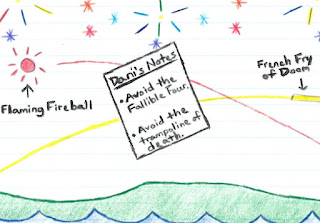 Dani's Notes
• Avoid the
Fallible Four.
• Avoid the
trampoline of
death.
Flaming Fireball
French Fry
of Doom